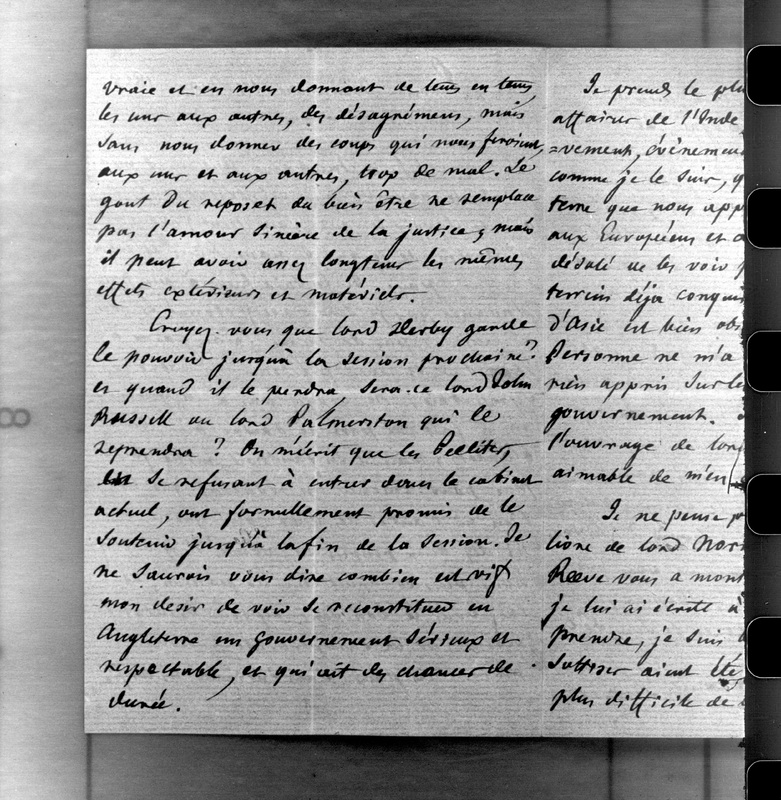 vraie et en nous donnant de tems en tems,
les uns aux autres, des désagrémens, mais
sans nous donner des coups qui nous feroient,
aux uns et aux autres, trop de mal. Le
gout du repos et du bien être ne remplace
pas l'amour sincère de la justice ; mais
il peut avoir assez longtems les mêmes
effets extérieurs et matériels.
Croyez-vous que lord Derby garde
le pouvoir jusqu'à la session prochaine ?
et quand il le perdra, sera-ce lord John
Russell ou lord Palmerston qui le
reprendra ? On m'écrit que les Peelites,
se refusant à entrer dans le cabinet
actuel, ont formellement promis de le
soutenir jusqu'à la fin de la session. Je
ne saurois vous dire combien est vif
mon desir de voir se reconstituer en
Angleterre un gouvernement sérieux et
respectable, et qui ait des chances de
durée.
Je prends le plu
affaires de l'Inde,
=vement, évènemen
comme je le suis, q
terre que nous app
aux Européens et a
désolé de les voir
terrein déja conquis
d'Asie est bien obs
Personne ne m'a
rien appris sur les
gouvernement.
l'ouvrage de lord
aimable de m'en
Je ne pense p
tions de lord Nor
Reeve vous a mont
je lui ai écrite à
prendre, je suis
sottises aient été
plus difficile de
8